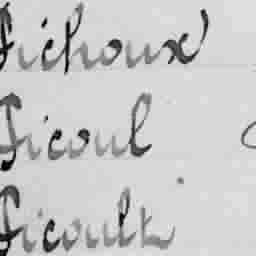 Pichoux
Picoul
Picoult